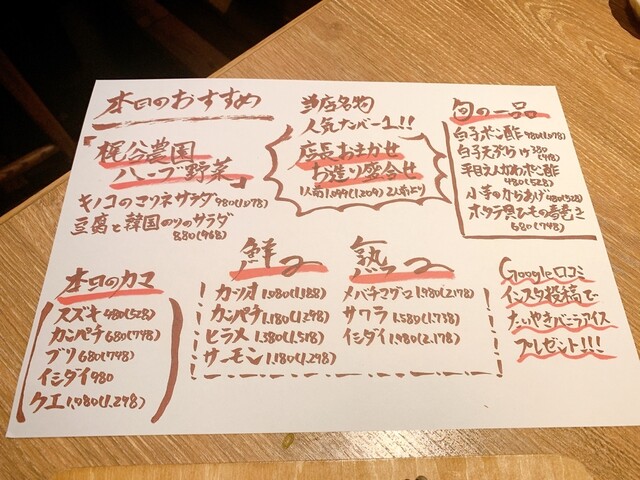 本日のおすすめ
「梶谷農園
ハーブ野菜」
キノコのマリネサラダ 980(1,078)
豆腐と韓国のりのサラダ
880(968)
当店名物
人気ナンバー1!!
店長おまかせ
お造り盛合せ
1人前1,099(1,209) 2人前より
旬の一品
白子ポン酢 980(1,078)
白子天ぷら 1ヶ380
(418)
平目えんがわポン酢
480(528)
小芋のからあげ 480(528)
ホタテ貝ひもの春巻き
680(748)
本日のカマ
スズキ 480(528)
カンパチ 680(748)
ブリ 680(748)
イシダイ 980
クエ 1,980(1,298)
鮮
カツオ 1,080(1,188)
カンパチ 1,180(1,298)
ヒラメ 1,380(1,518)
サーモン 1,180(1,298)
熟
メバチマグロ 1,980(2,178)
サワラ 1,580(1,738)
イシダイ 1,980(2,178)
Google口コミ
インスタ投稿で
たいやきバニラアイス
プレゼント!!!